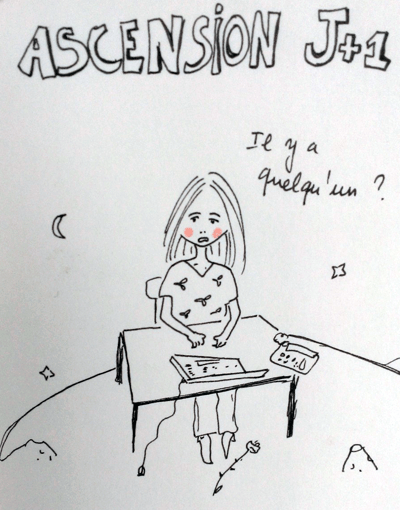 ASCENSION J+1
Il y a
quelqu'un ?